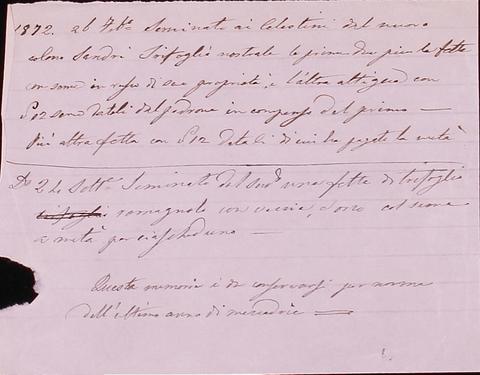 1872. al Feb.º Seminato ai Celestini dal nuovo
colono Sandri Trifoglio nostrale le prime due fette
con seme in rufo di sua proprietà, e l'altra attigua con
£ 12 seme datoli dal padrone in compenso del primo —
Più altra fetta con £ 12 datali di cui ha pagato la metà
D.º 20 Sett.e Seminato dal Sud.º una fetta di trifoglio
romagnolo con veccia, e orzo col seme
a metà per ciascheduno —
Questa memoria è da conservarsi per norma
dell'ultimo anno di mezzadria —